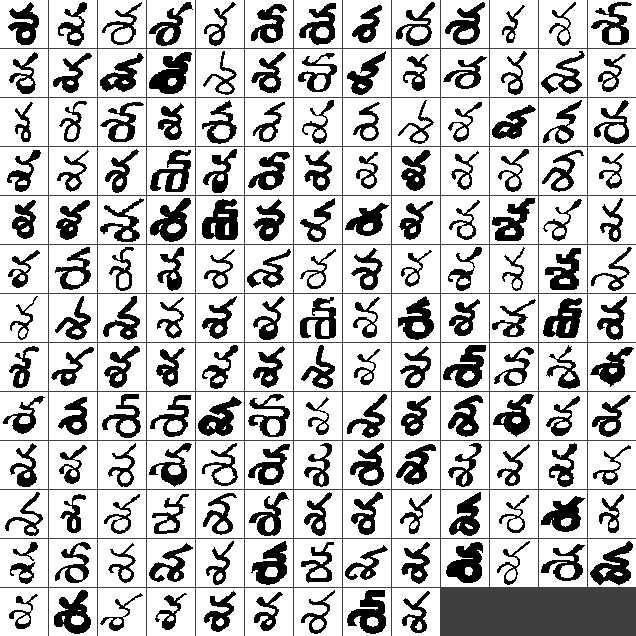 శ శ శ శ శ శ శ శ శ శ శ శ శ
శ శ శ శ శ శ శ శ శ శ శ శ శ
శ శ శ శ శ శ శ శ శ శ శ శ శ
శ శ శ శ శ శ శ శ శ శ శ శ శ
శ శ శ శ శ శ శ శ శ శ శ శ శ
శ శ శ శ శ శ శ శ శ శ శ శ శ
శ శ శ శ శ శ శ శ శ శ శ శ శ
శ శ శ శ శ శ శ శ శ శ శ శ శ
శ శ శ శ శ శ శ శ శ శ శ శ శ
శ శ శ శ శ శ శ శ శ శ శ శ శ
శ శ శ శ శ శ శ శ శ శ శ శ శ
శ శ శ శ శ శ శ శ శ శ శ శ శ
శ శ శ శ శ శ శ శ శ